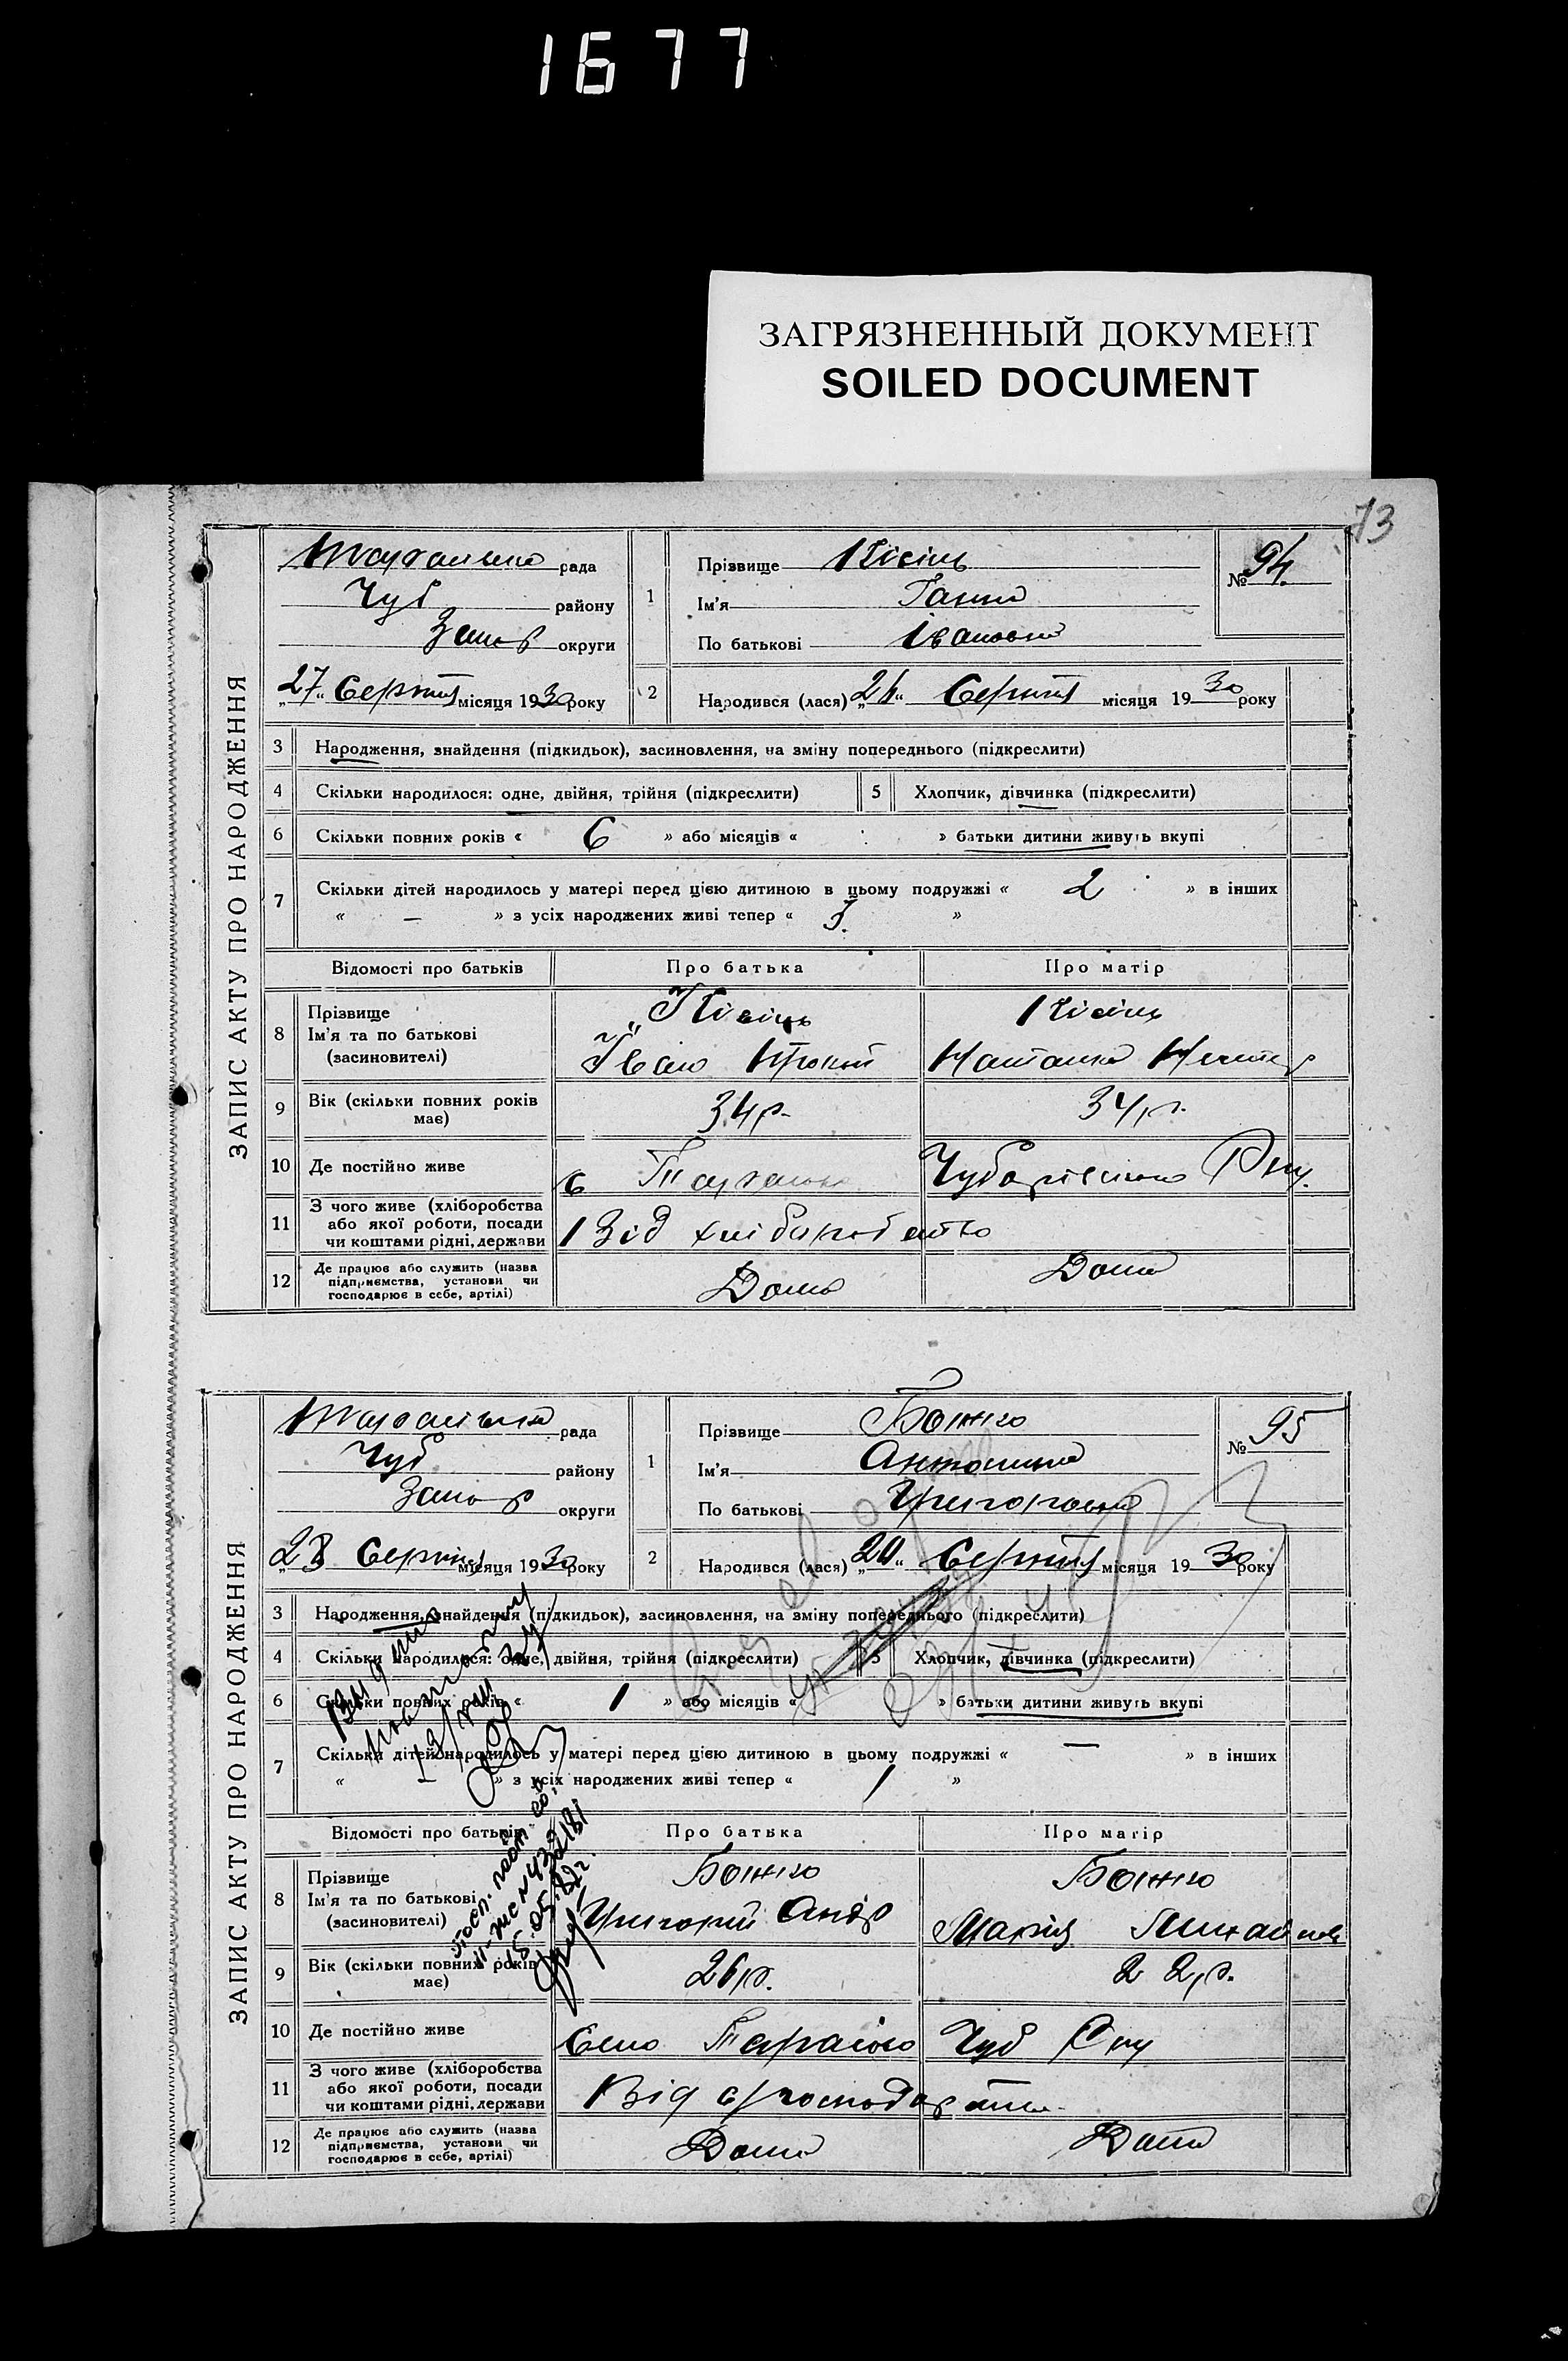 1677
ЗАГРЯЗНЕННЫЙ ДОКУМЕНТ
SOILED DOCUMENT
73
ЗАПИС АКТУ ПРО НАРОДЖЕННЯ
рада
Чуб району
Запор округи
„27“ Серпня місяця 1930 року
1 Прізвище Кісіль
Ім'я Ганна
По батькові Івановна
№ 94
2 Народився (лася) „26“ Серпня місяця 1930 року
3 Народження, знайдення (підкидьок), засиновлення, на зміну попереднього (підкреслити)
4 Скільки народилося: одне, двійня, трійня (підкреслити) 5 Хлопчик, дівчинка (підкреслити)
6 Скільки повних років « 6 » або місяців « » батьки дитини живуть вкупі
7 Скільки дітей народилось у матері перед цією дитиною в цьому подружжі « 2 » в інших
« — » з усіх народжених живі тепер « 3. »
Відомості про батьків Про батька Про матір
8 Прізвище Кісіль Кісіль
Ім'я та по батькові Іван
(засновителі)
9 Вік (скільки повних років має) 34 р. 34 р.
10 Де постійно живе с
11 З чого живе (хліборобства або якої роботи, посади чи коштами рідні, держави Від хліборобства
12 Де працює або служить (назва підприємства, установи чи господарює в себе, артілі) Дома Дома
ЗАПИС АКТУ ПРО НАРОДЖЕННЯ
рада
Чуб району
Запор округи
„28 Серпня місяця 1930 року
1 Прізвище Божко
Ім'я Антонина
По батькові Григоровна
№ 95
2 Народився (лася) „20“ Серпня місяця 1930 року
3 Народження, знайдення (підкидьок), засиновлення, на зміну попереднього (підкреслити)
4 Скільки народилося: одне, двійня, трійня (підкреслити) 5 Хлопчик, дівчинка (підкреслити)
6 Скільки повних років « 1 » або місяців « » батьки дитини живуть вкупі
7 Скільки дітей народилось у матері перед цією дитиною в цьому подружжі « — » в інших
« » з усіх народжених живі тепер « 1 »
Відомості про батьків Про батька Про матір
8 Прізвище Божко Божко
Ім'я та по батькові Григорий Андр Мария
(засиновителі)
9 Вік (скільки повних років має) 26 р. 22 р.
10 Де постійно живе Село Чуб
11 З чого живе (хліборобства або якої роботи, посади чи коштами рідні, держави Від
12 Де працює або служить (назва підприємства, установи чи господарює в себе, артілі) Дома Дома